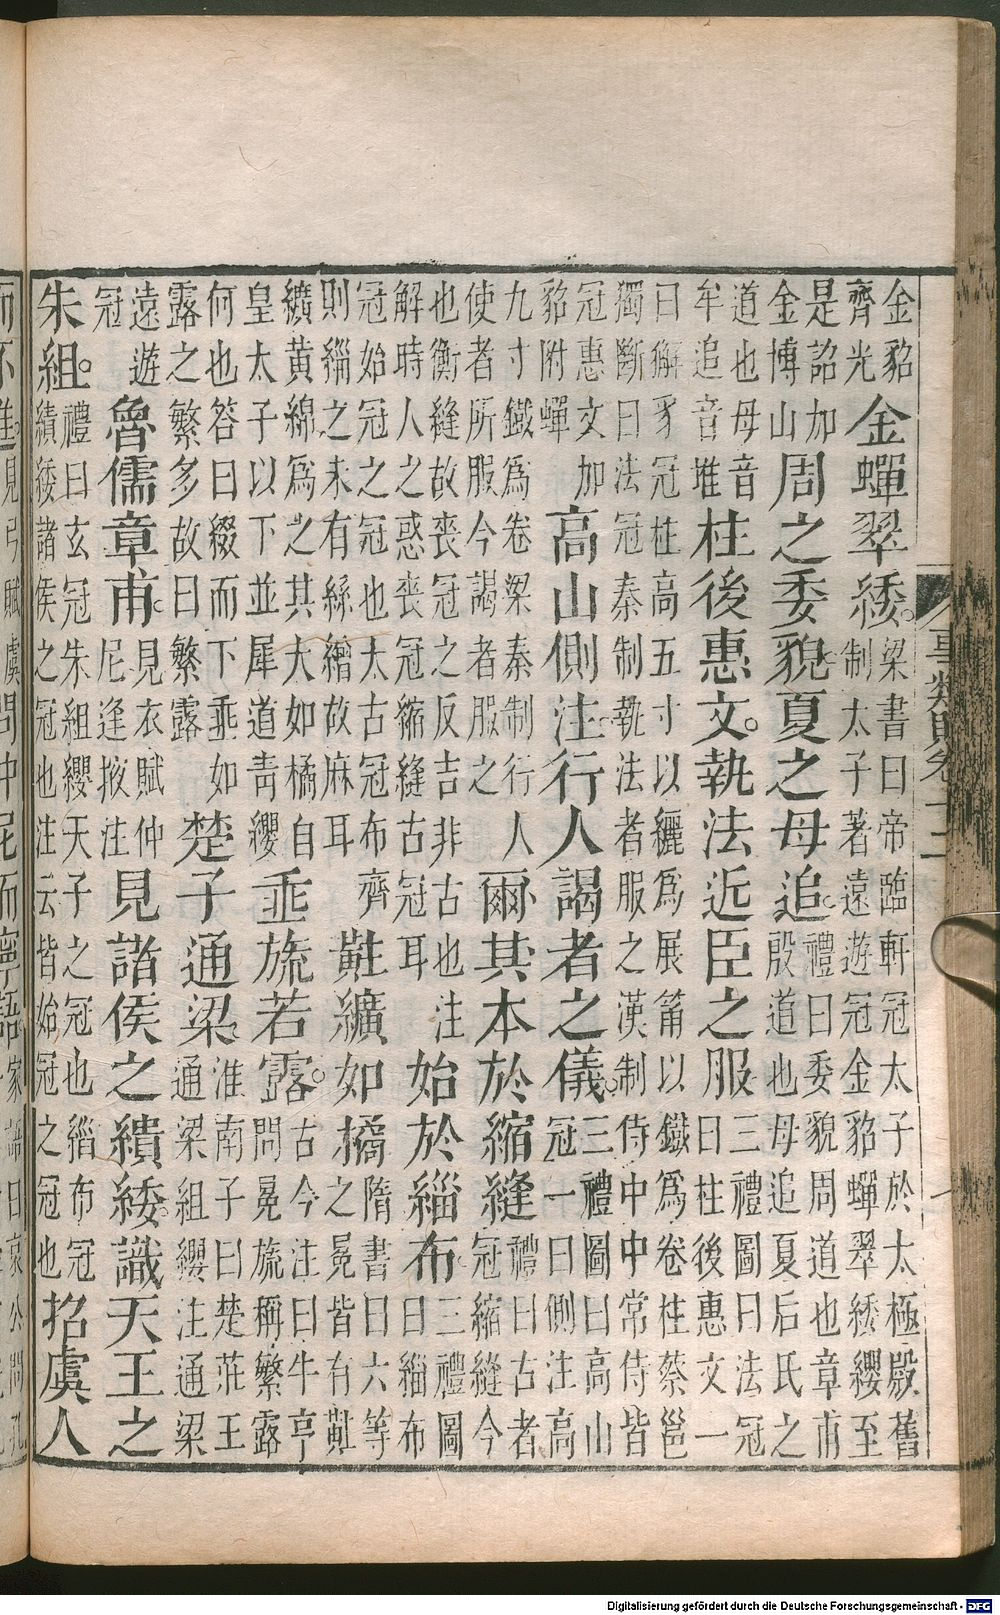 金貂齊光金蟬翠緌。梁書曰帝臨軒冠太子於太極殿舊制太子著遠遊冠金貂蟬翠緌纓至
是詔加金博山周之委貌夏之母追。禮曰委貌周道也章甫殷道也母追夏后氏之
道也母音牟追音堆柱後惠文。執法近臣之服三禮圖曰法冠曰柱後惠文一
曰獬豸冠柱高五寸以纚爲展筩以鐵爲卷柱蔡邕獨斷曰法冠秦制執法者服之漢制侍中中常侍皆
冠惠文加貂附蟬高山側注。行人謁者之儀。三禮圖曰高山冠一曰側注高
九寸鐵爲卷梁秦制行人使者所服今謁者服之爾其本於縮縫禮曰古者冠縮縫今
也衡縫故喪冠之反吉非古也注解時人之惑喪冠縮縫古冠耳始於緇布。三禮圖曰緇布
冠始冠之冠也太古冠布齊則緇之未有絲繒故麻耳黈纊如橘隋書曰六等之冕皆有黈
纊黄綿爲之其大如橘自皇太子以下並犀道青纓垂旒若露。古今注曰牛亨問冕旒稱繁露
何也答曰綴而下垂如露之繁多故曰繁露楚子通梁。淮南子曰楚莊王通梁組纓注通梁
遠遊冠魯儒章甫。見衣賦仲尼逢掖注見諸侯之繢緌。識天王之
朱組。禮曰玄冠朱組纓天子之冠也緇布冠繢緌諸侯之冠也注云皆始冠之冠也招虞人